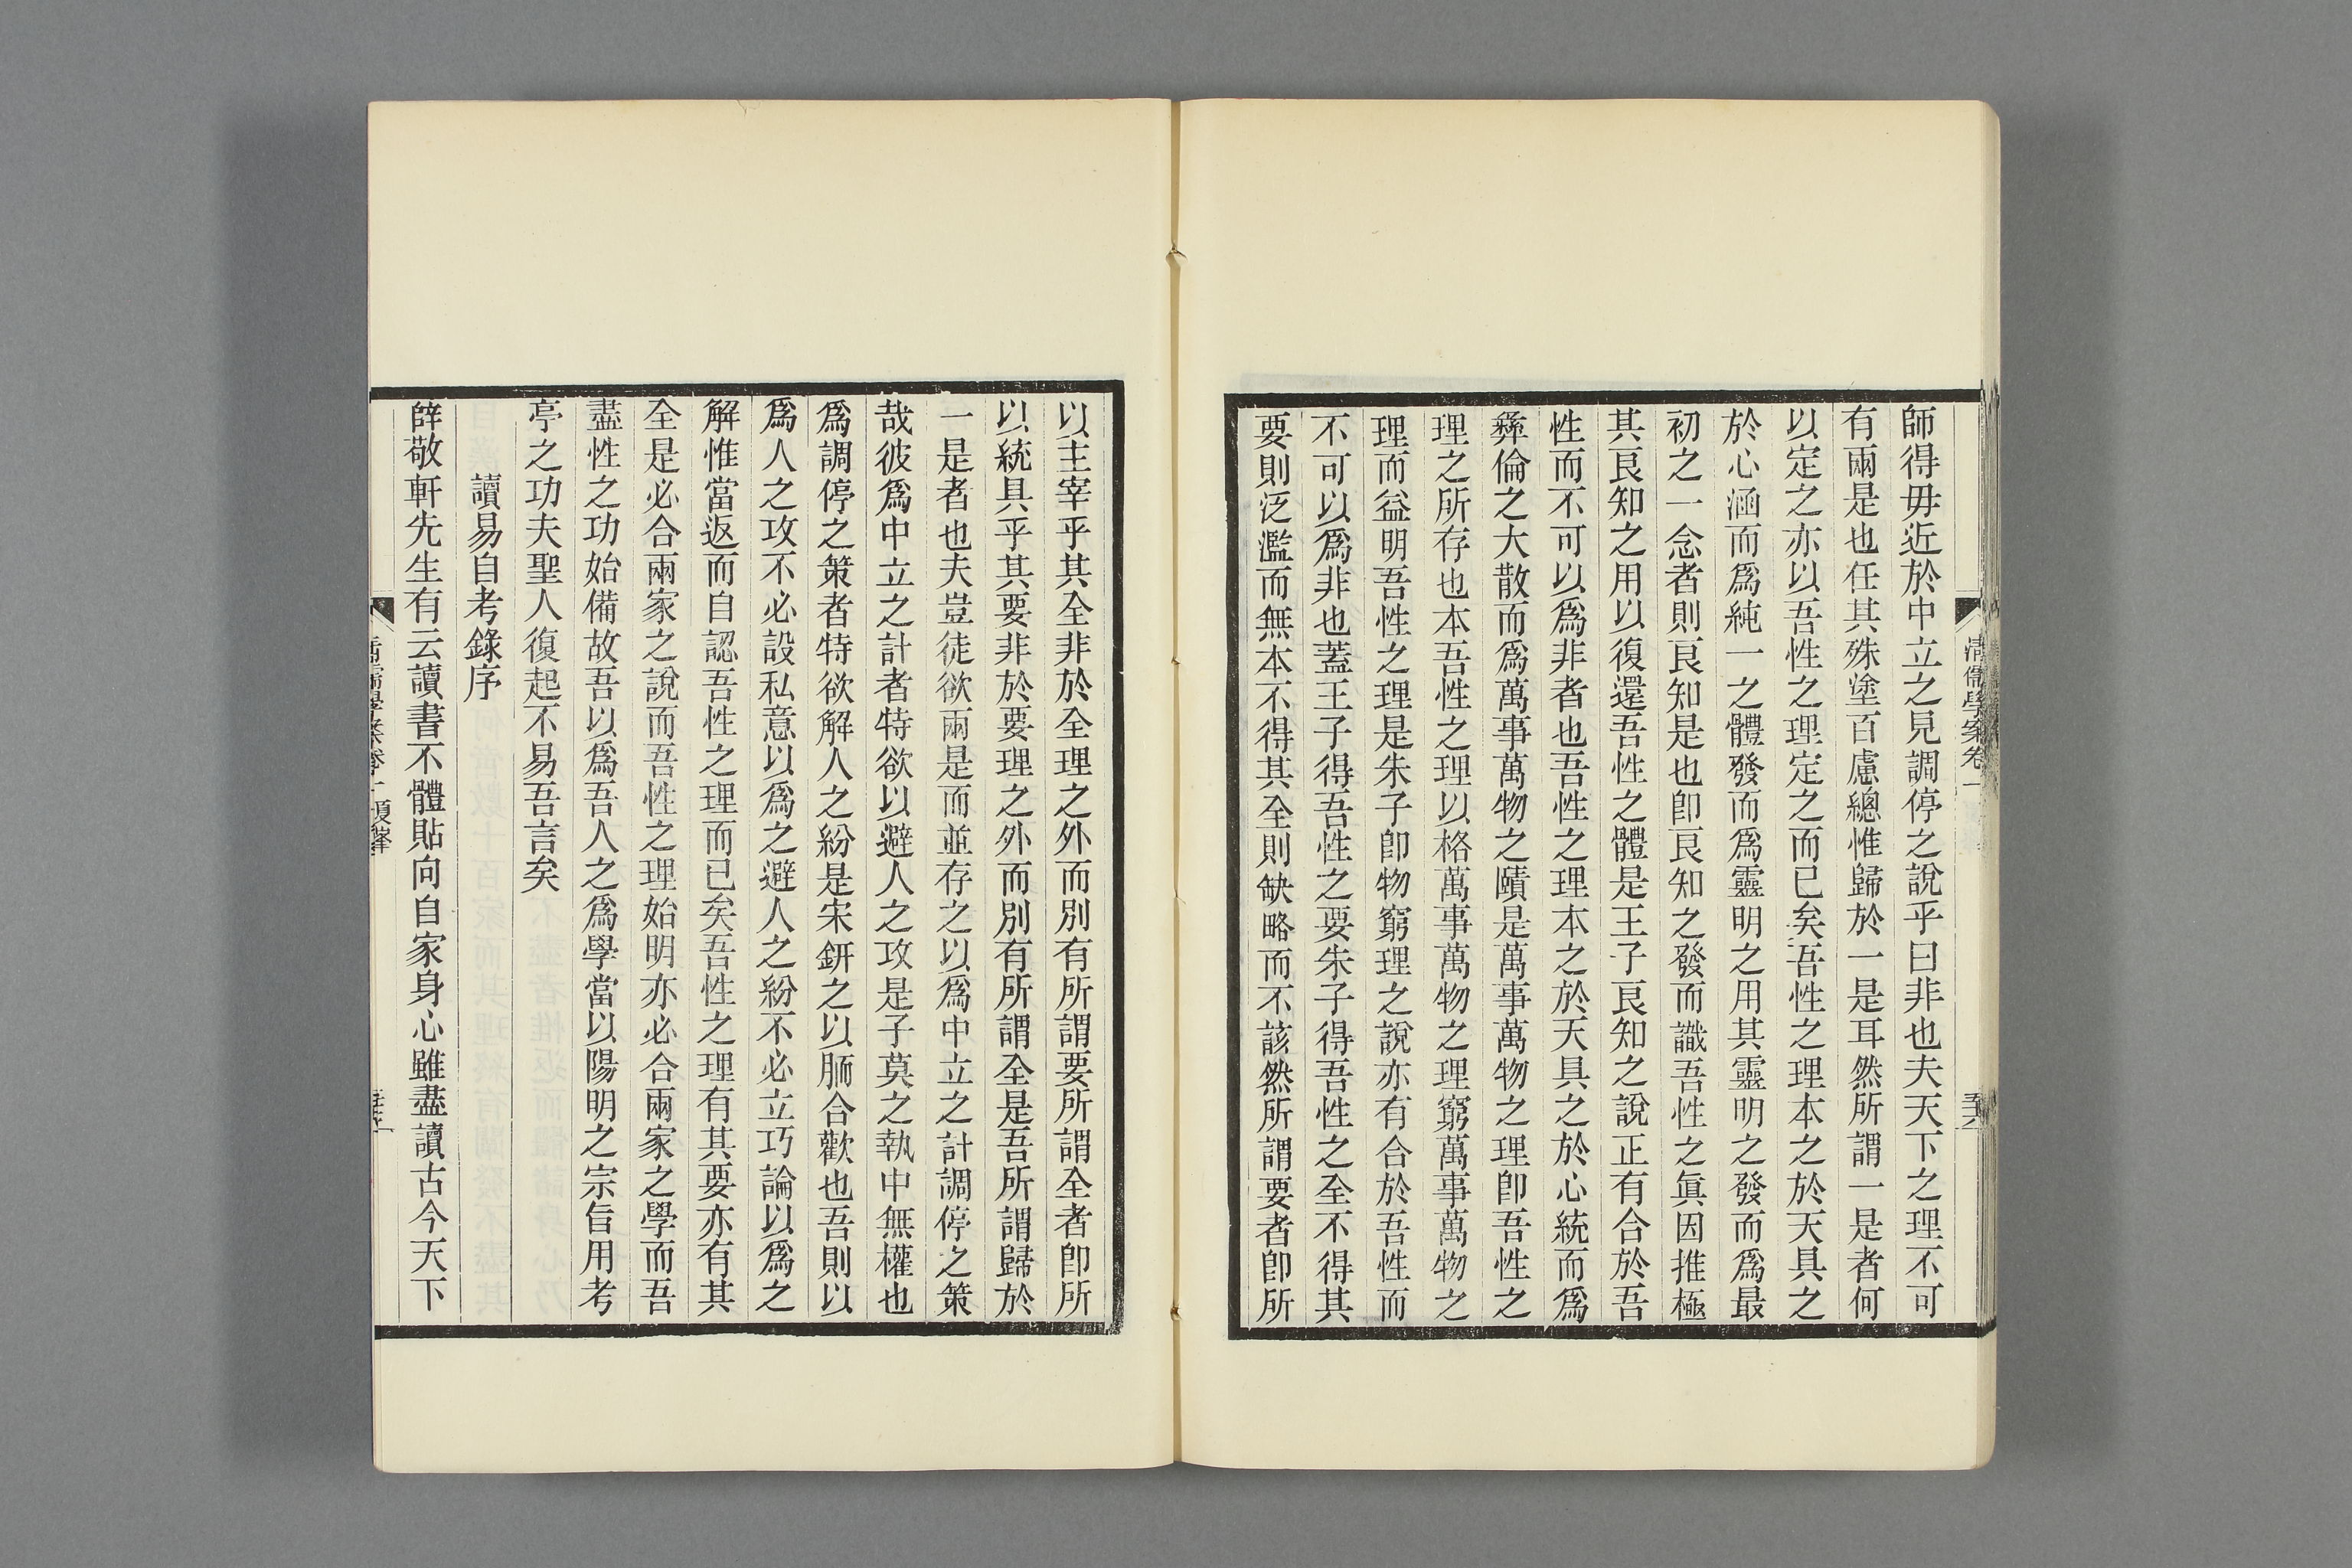 清儒學案卷一
師得毋近於中立之見調停之說乎曰非也夫天下之理不可
有兩是也任其殊塗百慮總惟歸於一是耳然所謂一是者何
以定之亦以吾性之理定之而已矣吾性之理本之於天具之
於心涵而爲純一之體發而爲靈明之用其靈明之發而爲最
初之一念者則良知是也卽良知之發而識吾性之眞因推極
其良知之用以復還吾性之體是王子良知之說正有合於吾
性而不可以爲非者也吾性之理本之於天具之於心統而爲
彝倫之大散而爲萬事萬物之賾是萬事萬物之理卽吾性之
理之所存也本吾性之理以格萬事萬物之理窮萬事萬物之
理而益明吾性之理是朱子卽物窮理之說亦有合於吾性而
不可以爲非也蓋王子得吾性之要朱子得吾性之全不得其
要則泛濫而無本不得其全則缺略而不該然所謂要者卽所
以主宰乎其全非於全理之外而別有所謂要所謂全者卽所
以統具乎其要非於要理之外而別有所謂全是吾所謂歸於
一是者也夫豈徒欲兩是而並存之以爲中立之計調停之策
哉彼爲中立之計者特欲以避人之攻是子莫之執中無權也
爲調停之策者特欲解人之紛是宋鈃之以胹合歡也吾則以
爲人之攻不必設私意以爲之避人之紛不必立巧論以爲之
解惟當返而自認吾性之理而已矣吾性之理有其要亦有其
全是必合兩家之說而吾性之理始明亦必合兩家之學而吾
盡性之功始備故吾以爲吾人之爲學當以陽明之宗旨用考
亭之功夫聖人復起不易吾言矣
讀易自考錄序
薛敬軒先生有云讀書不體貼向自家身心雖盡讀古今天下